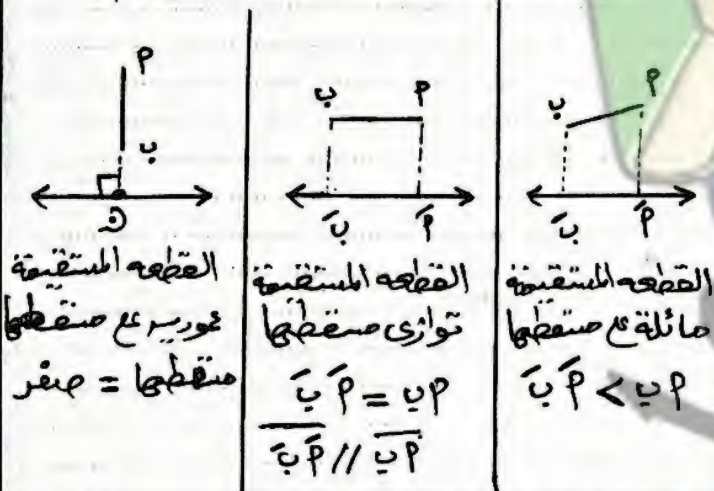 م
ب
مَ
بَ
القطعه المستقيمة
مائلة على مسقطها
م ب > مَ بَ
م
ب
مَ
بَ
القطعه المستقيمة
توازى مسقطها
م ب = مَ بَ
م ب // مَ بَ
م
ب
القطعه المستقيمة
عموديه على مسقطها
مسقطها = صفر